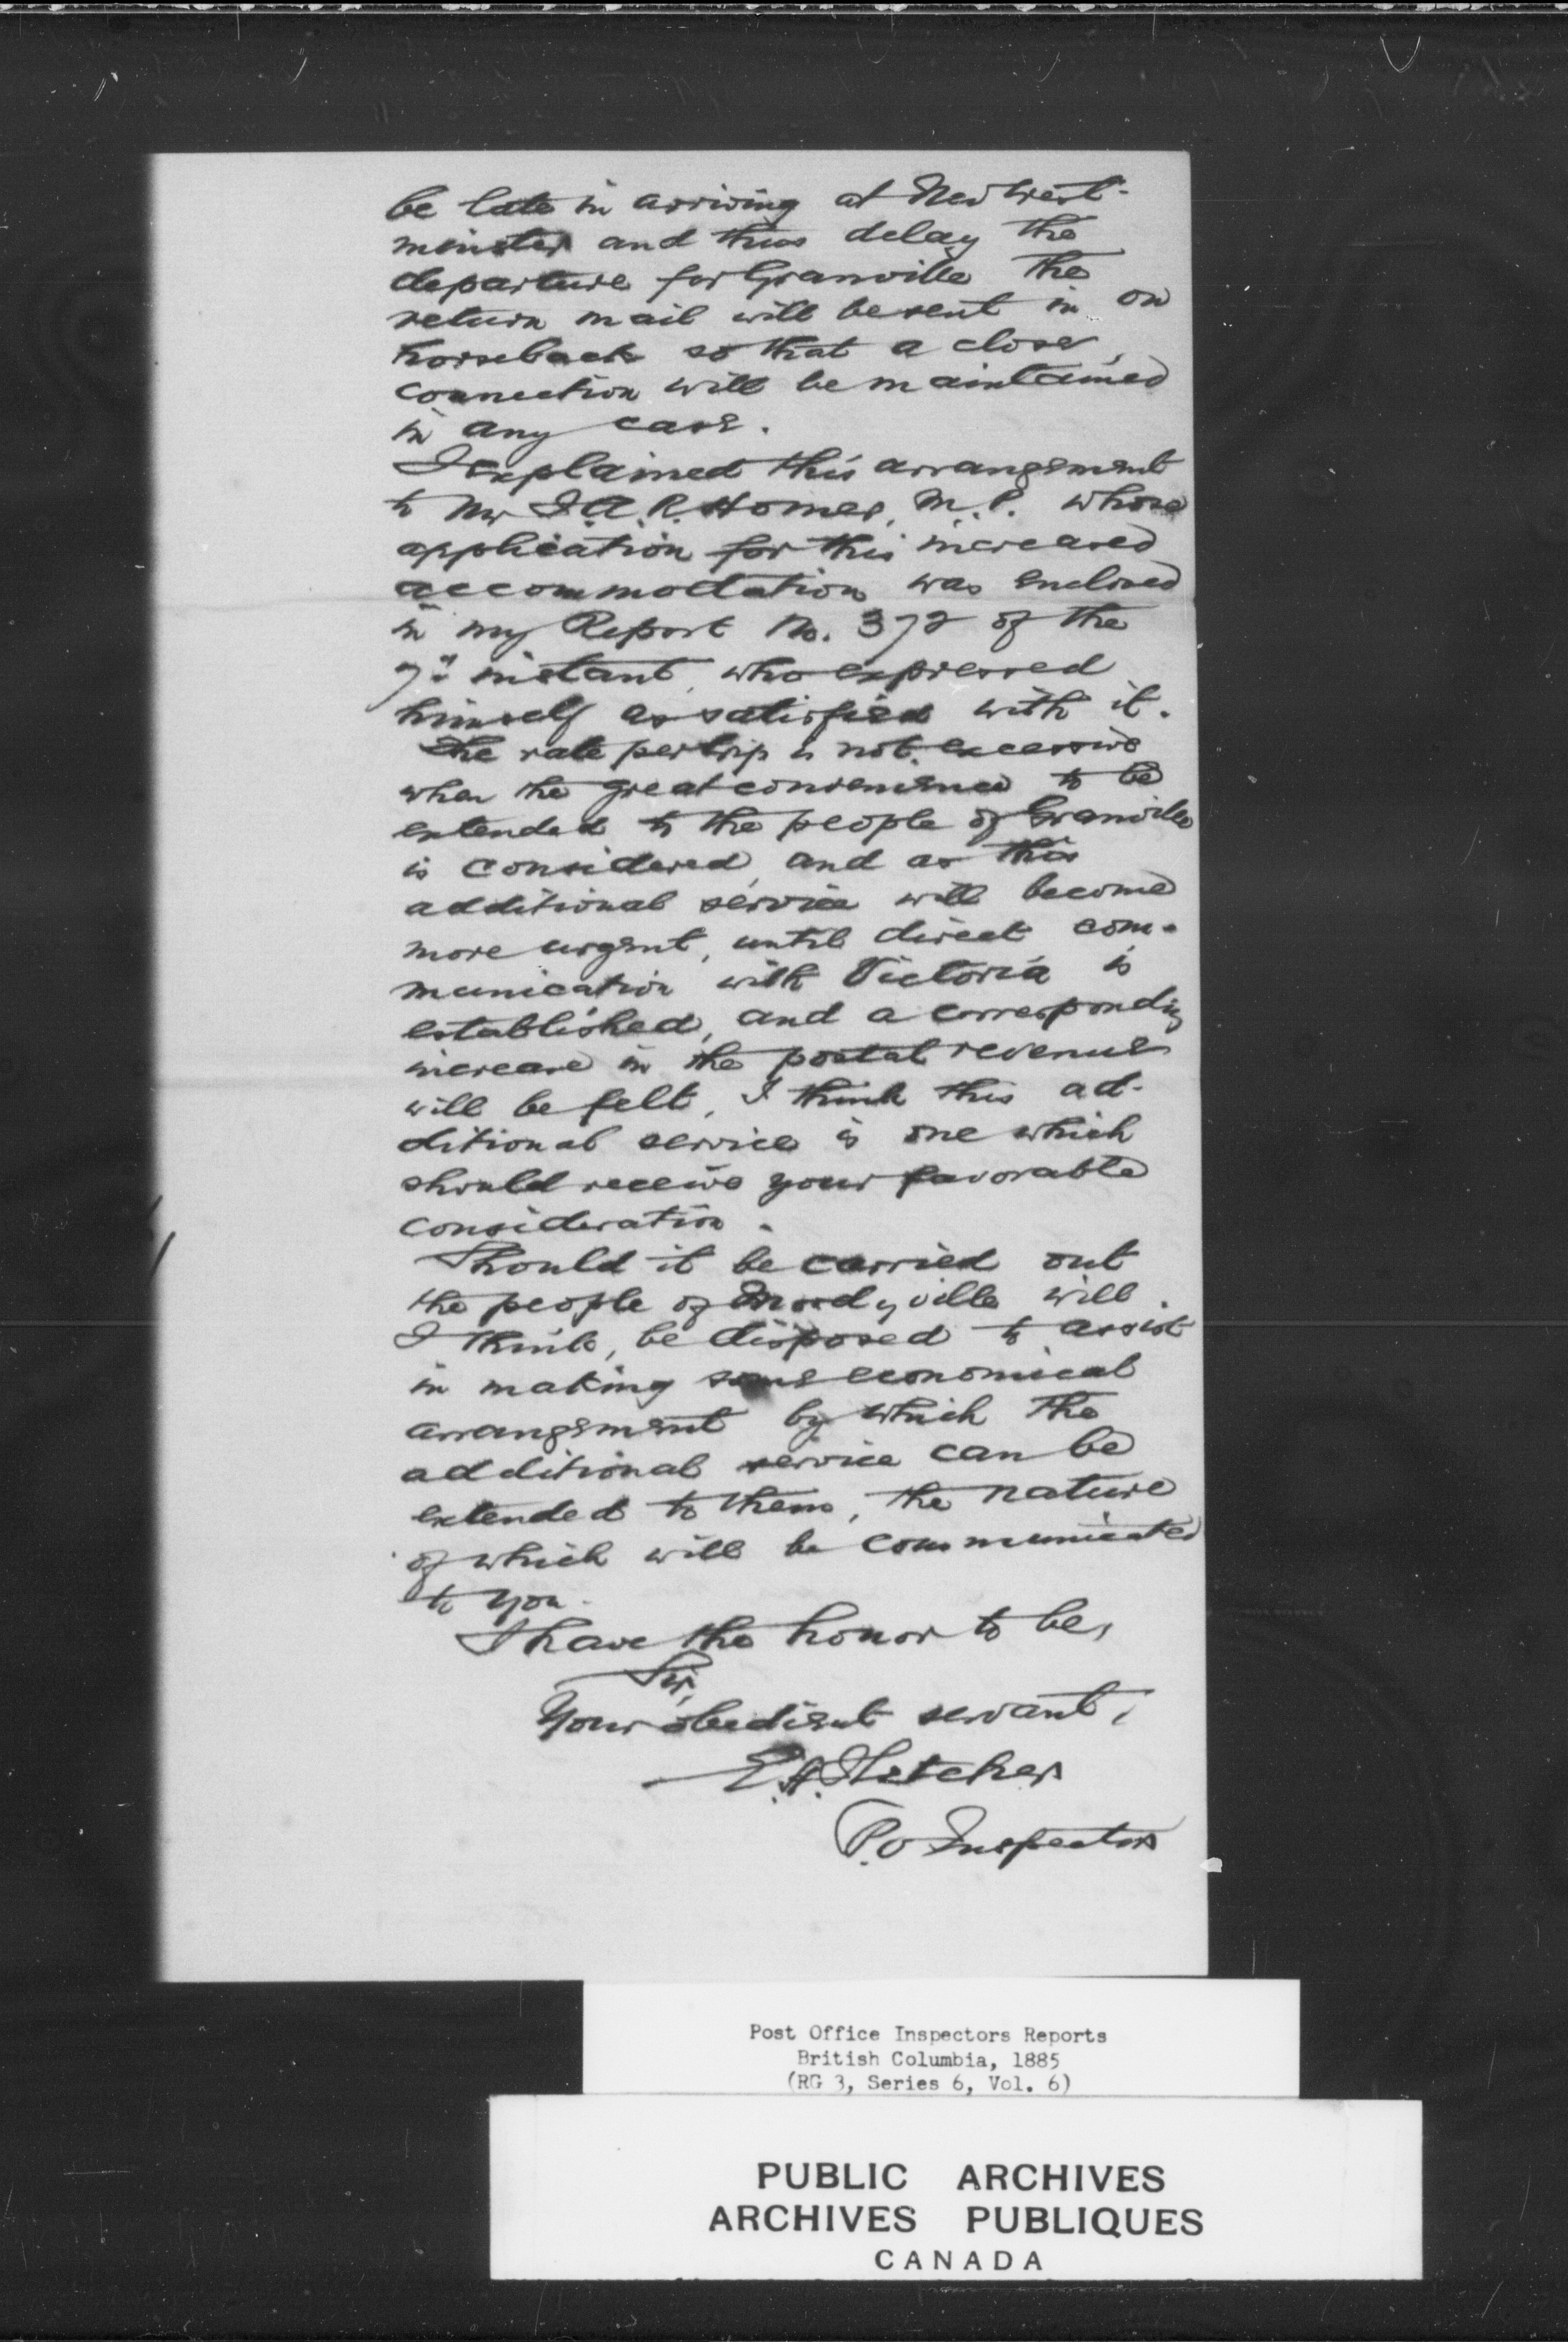 be late in arriving at New West-
minster and thus delay the
departure for Granville the
return mail will be sent in on
horseback so that a close
connection will be maintained
in any case.
I explained this arrangement
to Mr J.A.R. Homer, M.P. whose
application for this increased
accommodation was enclosed
in my Report No. 372 of the
7th instant, who expressed
himself as satisfied with it.
The rate per trip is not excessive
when the great convenience to be
extended to the people of Granville
is considered, and as this
additional service will become
more urgent, until direct com-
munication with Victoria is
established, and a corresponding
increase in the postal revenue
will be felt, I think this ad-
ditional service is one which
should receive your favorable
consideration.
Should it be carried out
the people of Moodyville will
I think, be disposed to assist
in making some economical
arrangement by which the
additional service can be
extended to them, the nature
of which will be communicated
to you.
I have the honor to be,
Sir,
Your obedient servant,
E.H. Fletcher
P.O Inspector
Post Office Inspectors Reports
British Columbia, 1885
(RG 3, Series 6, Vol. 6)
PUBLIC ARCHIVES
ARCHIVES PUBLIQUES
CANADA